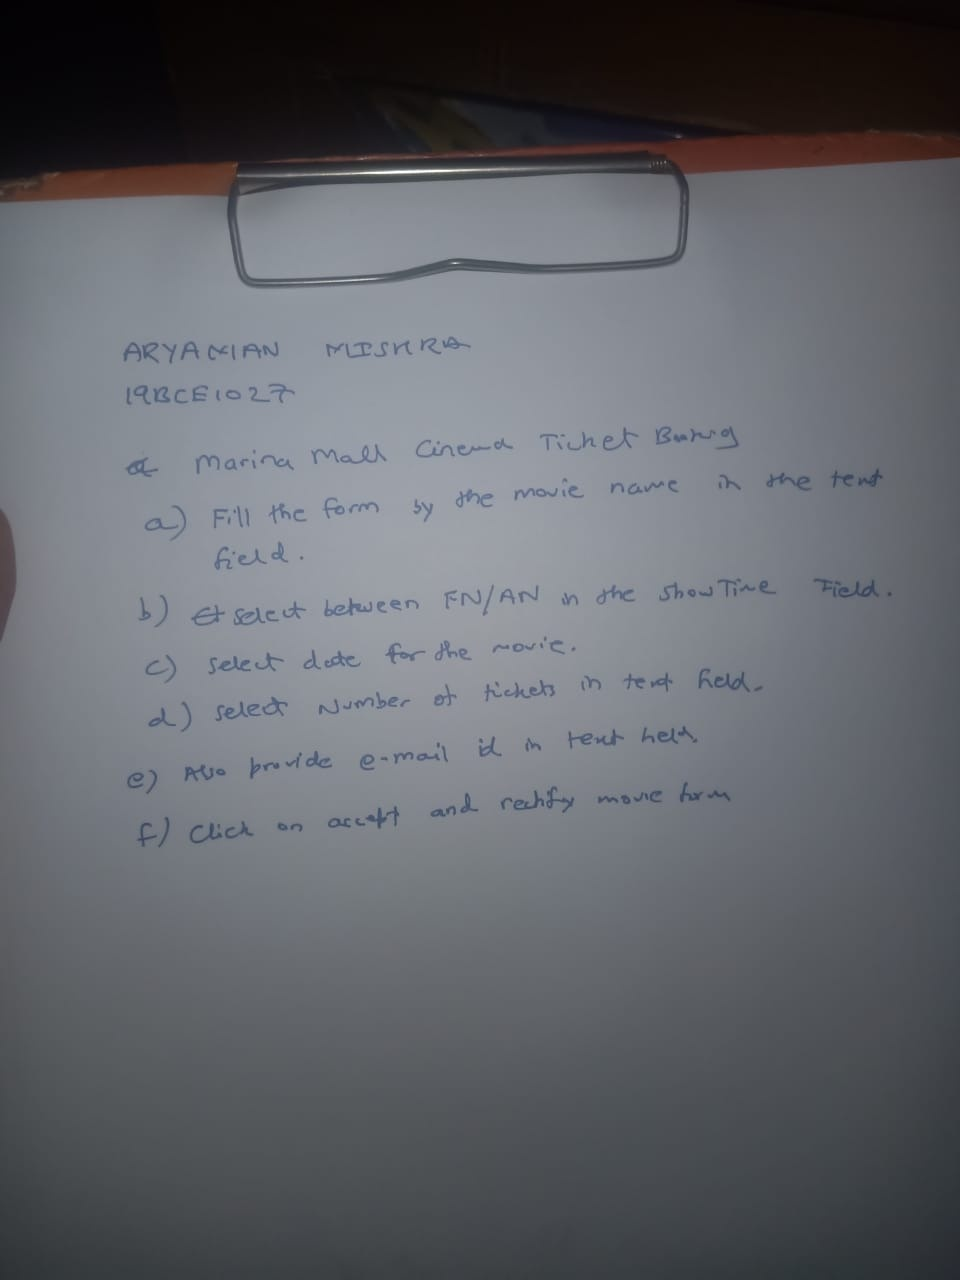 ARYAMAN MISHRA
19BCE1027
Marina Mall Cinema Ticket Booking
a) Fill the form by the movie name in the text
field.
b) select between FN/AN in the Show Time Field.
c) select date for the movie.
d) select Number of tickets in text field.
e) Also provide e-mail id in text field.
f) Click on accept and rectify movie form